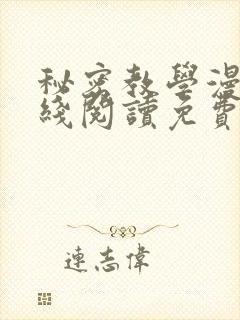 秘密教學漫
綫閱讀免費
連志偉